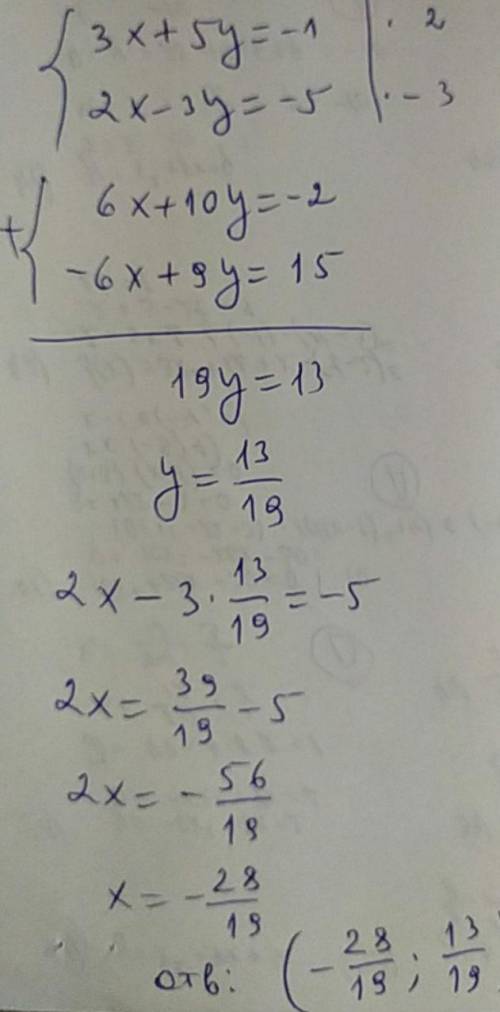 3x+5y=-1 | · 2
2x-3y=-5 | ·-3
+ 6x+10y=-2
-6x+9y=15
19y=13
y=13/19
2x-3·13/19=-5
2x=39/19-5
2x=-56/19
x=-28/19
отв: (-28/19; 13/19)